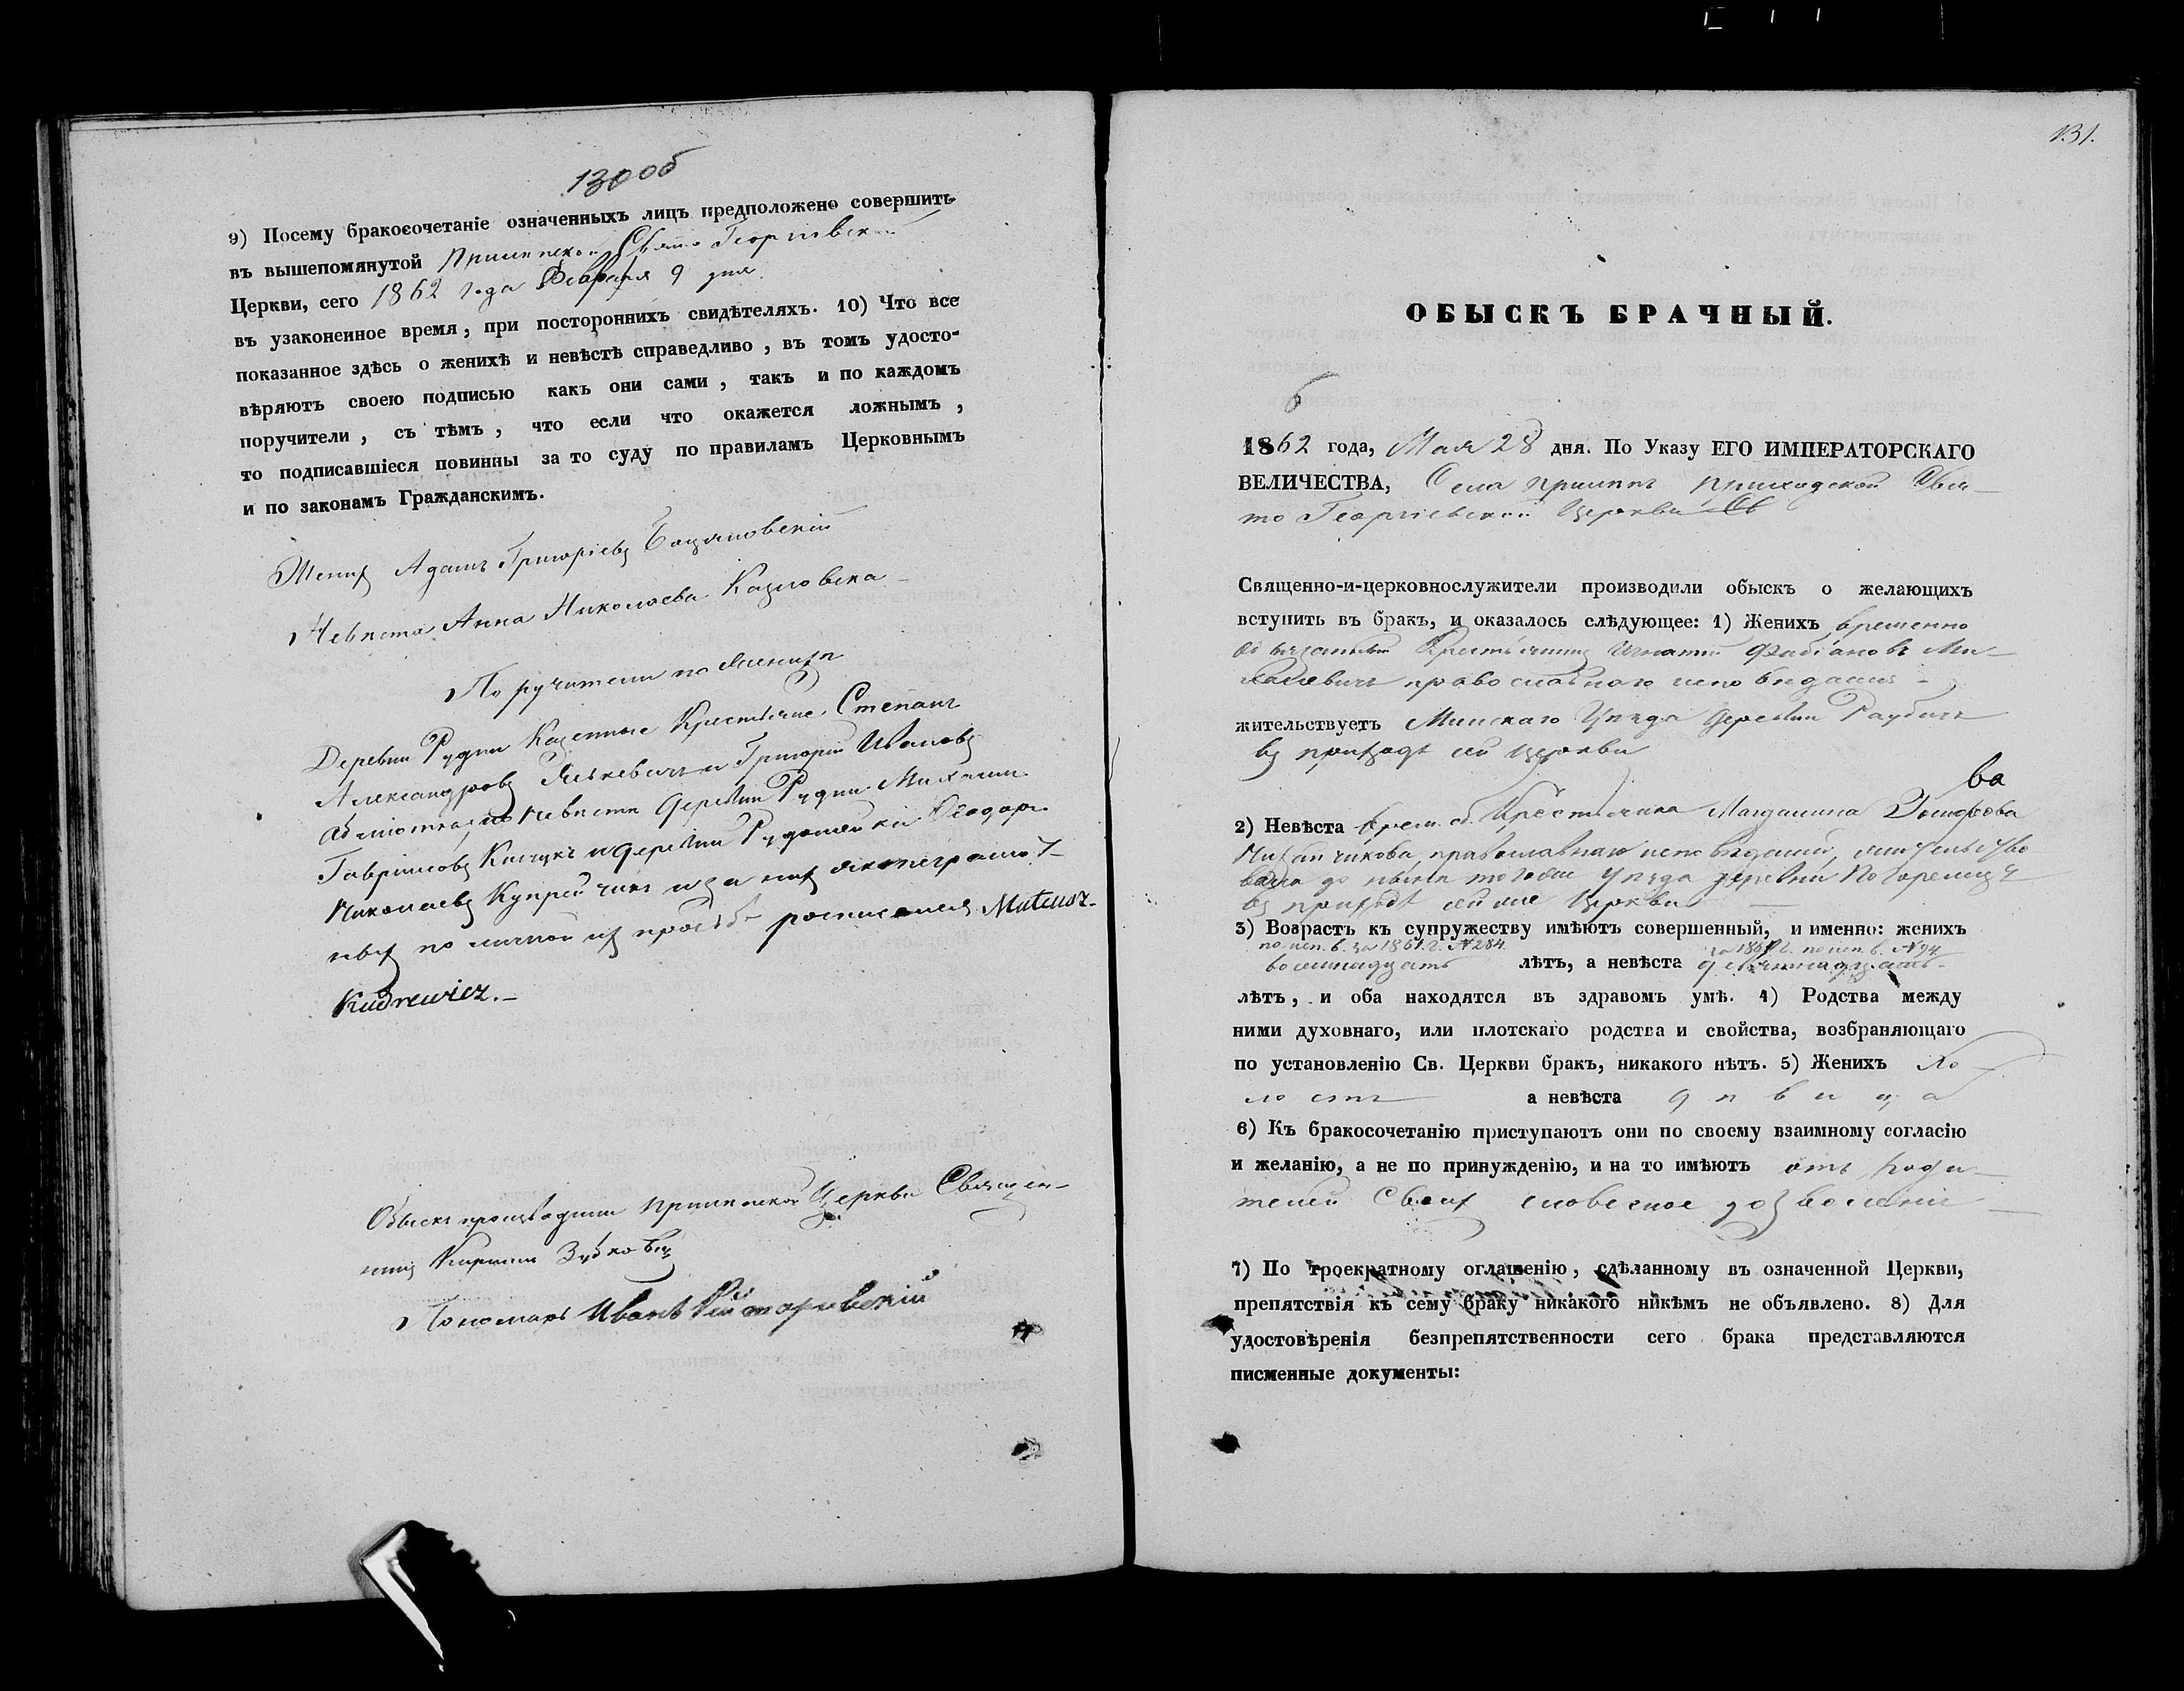 130 об
9) Посему бракосочетаніе означенныхъ лицъ предположено совершить
въ вышепомянутой Прилипской Свято Георгіевской
Церкви, сего 1862 года Февраля 9 дня.
въ узаконенное время, при постороннихъ свидѣтеляхъ. 10) Что все
показанное здѣсь о женихѣ и невѣстѣ справедливо, въ томъ удосто-
вѣряютъ своею подписью какъ они сами, такъ и по каждомъ
поручители, съ тѣмъ, что если что окажется ложнымъ,
то подписавшіеся повинны за то суду по правиламъ Церковнымъ
и по законамъ Гражданскимъ.
Женихъ Адамъ Григоріевъ Боцяновскій
Невѣста Анна Николаева Казловска
Поручители по женихѣ
Деревни Рудни Казенные Крестьяне Степанъ
Александровъ и Григорій Ивановъ
по невѣсти деревни Рудни Михаилъ
Гавріиловъ и деревни Ѳеодоръ
Николаевъ Купрейчикъ и за нихъ яко неграмот-
ныхъ по личной ихъ прозьбѣ росписался Mateusz
Kudrewicz.
Обыскъ производили Прилипской Церкви Священ-
никъ Кириллъ Зубковичъ
Пономарь Иванъ
131.
ОБЫСКЪ БРАЧНЫЙ.
6
1862 года, Мая 28 дня. По Указу ЕГО ИМПЕРАТОРСКАГО
ВЕЛИЧЕСТВА, Села Прилепъ приходской Свя-
то Георгіевской Церкви
Священно-и-церковнослужители производили обыскъ о желающихъ
вступить въ бракъ, и оказалось слѣдующее: 1) Женихъ временно
обязанный Крестьянинъ Игнатій Фабіановъ Ми-
халевичъ православнаго исповѣданія
жительствуетъ Минскаго Уѣзда деревни Раубичъ
въ приходѣ сей церкви
ва
2) Невѣста врем. об. Крестьянка Магдалина
православнаго исповѣданія, жительство
вала до нынѣ того же Уѣзда деревни
въ приходѣ сей же Церкви
3) Возрастъ къ супружеству имѣютъ совершенный, и именно: женихъ
по исп. в. за 1861. г. №284. за 1861 г. по исп. в. №94
восемнадцать лѣтъ, а невѣста девятнадцать
лѣтъ, и оба находятся въ здравомъ умѣ. 4) Родства между
ними духовнаго, или плотскаго родства и свойства, возбраняющаго
по установленію Св. Церкви бракъ, никакого нѣтъ. 5) Женихъ хо-
лостъ а невѣста дѣвица
6) Къ бракосочетанію приступаютъ они по своему взаимному согласію
и желанію, а не по принужденію, и на то имѣютъ отъ роди-
телей своихъ словесное дозволеніе
7) По троекратному оглашенію, сдѣланному въ означенной Церкви,
препятствія къ сему браку никакого никѣмъ не объявлено. 8) Для
удостовѣренія безпрепятственности сего брака представляются
писменные документы: